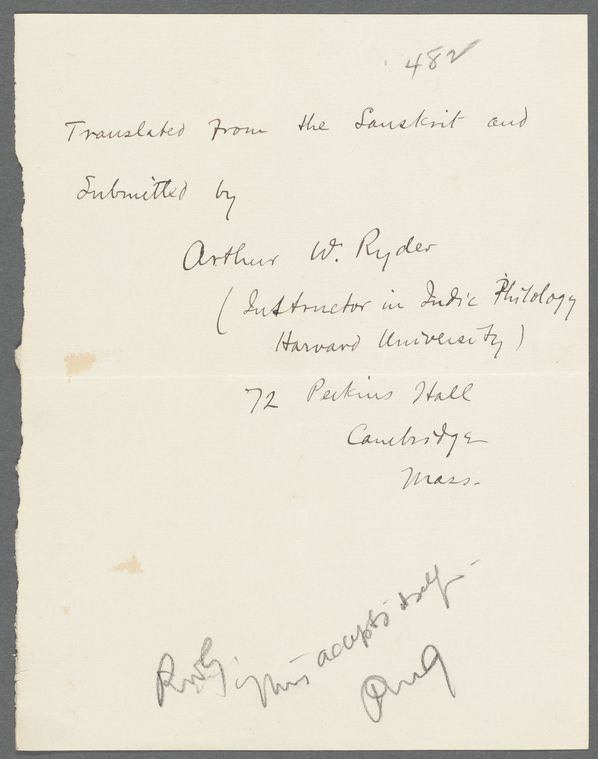 482
Translated from the Sanskrit and
Submitted by
Arthur W. Ryder
(Instructor in Indic Philology
Harvard University)
72 Perkins Hall
Cambridge
Mass.
RWG. this adapts itself.
RWG